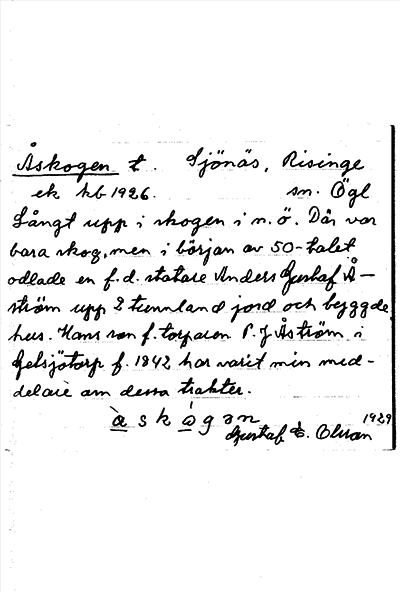 Åskogen t. Sjönäs, Risinge
ek kb 1926. sn. Ögl
Långt upp i skogen i n.ö. Där var
bara skog, men i början av 50-talet
odlade en f.d. statare Anders Gustaf Å-
ström upp 2 tunnland jord och byggde
hus. Hans son f. torparen P. J Åström i
Gelsjötorp f. 1842 har varit min med-
delare om dessa trakter.
à s k ó g ə n
1929
Gustaf E. Olsson